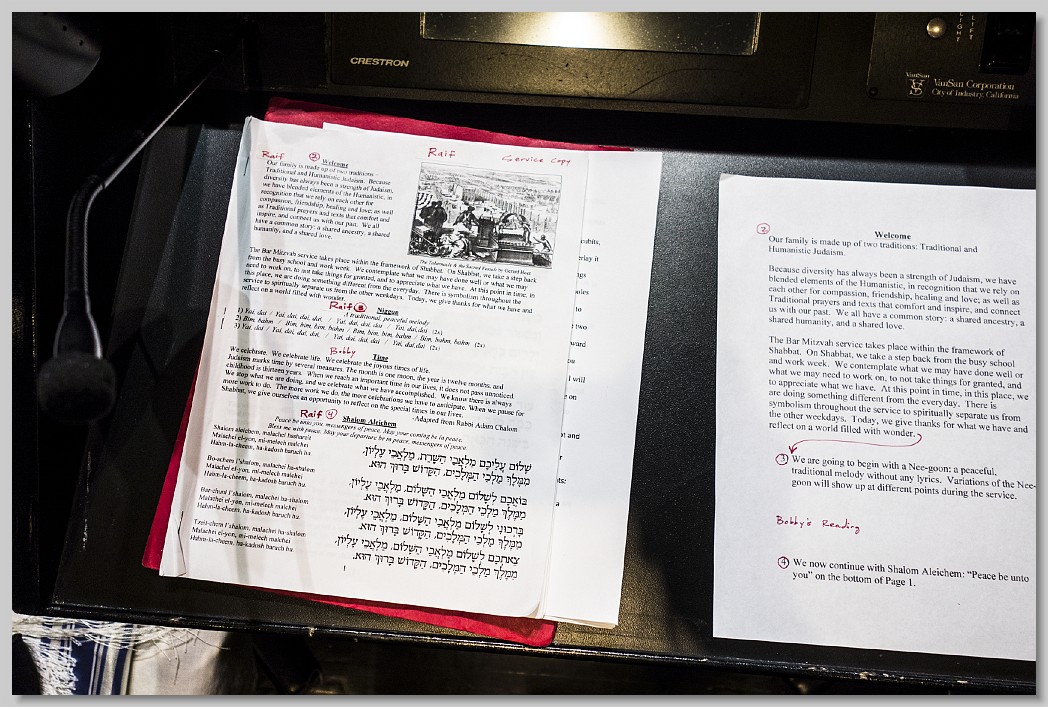 CRESTRON
LIGHT
LIFT
VanSan
VS
VanSan Corporation
City of Industry, California
Raif
Service Copy
Raif
2
Welcome
Our family is made up of two traditions –
Traditional and Humanistic Judaism. Because
diversity has always been a strength of Judaism,
we have blended elements of the Humanistic, in
recognition that we rely on each other for
compassion, friendship, healing and love; as well
as Traditional prayers and texts that comfort and
inspire, and connect us with our past. We all
have a common story: a shared ancestry, a shared
humanity, and a shared love.
The Tabernacle & the Sacred Vessels by Gerard Hoet
The Bar Mitzvah service takes place within the framework of Shabbat. On Shabbat, we take a step back
from the busy school and work week. We contemplate what we may have done well or what we may
need to work on, to not take things for granted, and to appreciate what we have. At this point in time, in
this place, we are doing something different from the everyday. There is symbolism throughout the
service to spiritually separate us from the other weekdays. Today, we give thanks for what we have and
reflect on a world filled with wonder.
Raif 3
Niggun
A traditional, peaceful melody
1) Yai, dai / Yai, dai, dai, dai, / Yai, dai, dai, dai / Yai, dai,dai (2x)
2) Bim, bahm / Bim, bim, bim, bahm / Bim, bim, bim, bahm / Bim, bahm, bahm (2x)
3) Yai, dai / Yai, dai, dai, dai, / Yai, dai, dai, dai / Yai, dai,dai (2x)
Bobby
Time
We celebrate. We celebrate life. We celebrate the joyous times of life.
Judaism marks time by several measures. The month is one moon, the year is twelve months, and
childhood is thirteen years. When we reach an important time in our lives, it does not pass unnoticed.
We stop what we are doing, and we celebrate what we have accomplished. We know there is always
more work to do. The more work we do, the more celebrations we have to anticipate. When we pause for
Shabbat, we give ourselves an opportunity to reflect on the special times in our lives.
-Adapted from Rabbi Adam Chalom
Raif 4
Shalom Aleichem
Peace be unto you, messengers of peace. May your coming be in peace.
Bless me with peace. May your departure be in peace, messengers of peace.
Shalom aleichem, malachei hashareit
Malachei el-yon, mi-melech malchei
Hahm-la-cheem, ha-kadosh baruch hu.
Bo-achem l'shalom, malachei ha-shalom
Malachei el-yon, mi-melech malachei
Hahm-la-cheem, ha-kadosh baruch hu.
Bar-chuni l'shalom, malachei ha-shalom
Malachei el-yon, mi-melech malachei
Hahm-la-cheem, ha-kadosh baruch hu.
Tzeit-chem l'shalom, malachei ha-shalom
Malachei el-yon, mi-melech malachei
Hahm-la-cheem, ha-kadosh baruch hu.
שָׁלוֹם עֲלֵיכֶם מַלְאֲכֵי הַשָּׁרֵת, מַלְאֲכֵי עֶלְיוֹן,
מִמֶּלֶךְ מַלְכֵי הַמְּלָכִים, הַקָּדוֹשׁ בָּרוּךְ הוּא.
בּוֹאֲכֶם לְשָׁלוֹם מַלְאֲכֵי הַשָּׁלוֹם, מַלְאֲכֵי עֶלְיוֹן,
מִמֶּלֶךְ מַלְכֵי הַמְּלָכִים, הַקָּדוֹשׁ בָּרוּךְ הוּא.
בָּרְכוּנִי לְשָׁלוֹם מַלְאֲכֵי הַשָּׁלוֹם, מַלְאֲכֵי עֶלְיוֹן,
מִמֶּלֶךְ מַלְכֵי הַמְּלָכִים, הַקָּדוֹשׁ בָּרוּךְ הוּא.
צֵאתְכֶם לְשָׁלוֹם מַלְאֲכֵי הַשָּׁלוֹם, מַלְאֲכֵי עֶלְיוֹן,
מִמֶּלֶךְ מַלְכֵי הַמְּלָכִים, הַקָּדוֹשׁ בָּרוּךְ הוּא.
1
cubits,
two
will
and
2
Welcome
Our family is made up of two traditions: Traditional and
Humanistic Judaism.
Because diversity has always been a strength of Judaism, we have
blended elements of the Humanistic, in recognition that we rely on
each other for compassion, friendship, healing and love; as well as
Traditional prayers and texts that comfort and inspire, and connect
us with our past. We all have a common story: a shared ancestry, a
shared humanity, and a shared love.
The Bar Mitzvah service takes place within the framework of
Shabbat. On Shabbat, we take a step back from the busy school
and work week. We contemplate what we may have done well or
what we may need to work on, to not take things for granted, and
to appreciate what we have. At this point in time, in this place, we
are doing something different from the everyday. There is
symbolism throughout the service to spiritually separate us from
the other weekdays. Today, we give thanks for what we have and
reflect on a world filled with wonder.
3 We are going to begin with a Nee-goon; a peaceful,
traditional melody without any lyrics. Variations of the Nee-
goon will show up at different points during the service.
Bobby's Reading
4 We now continue with Shalom Aleichem: “Peace be unto
you” on the bottom of Page 1.